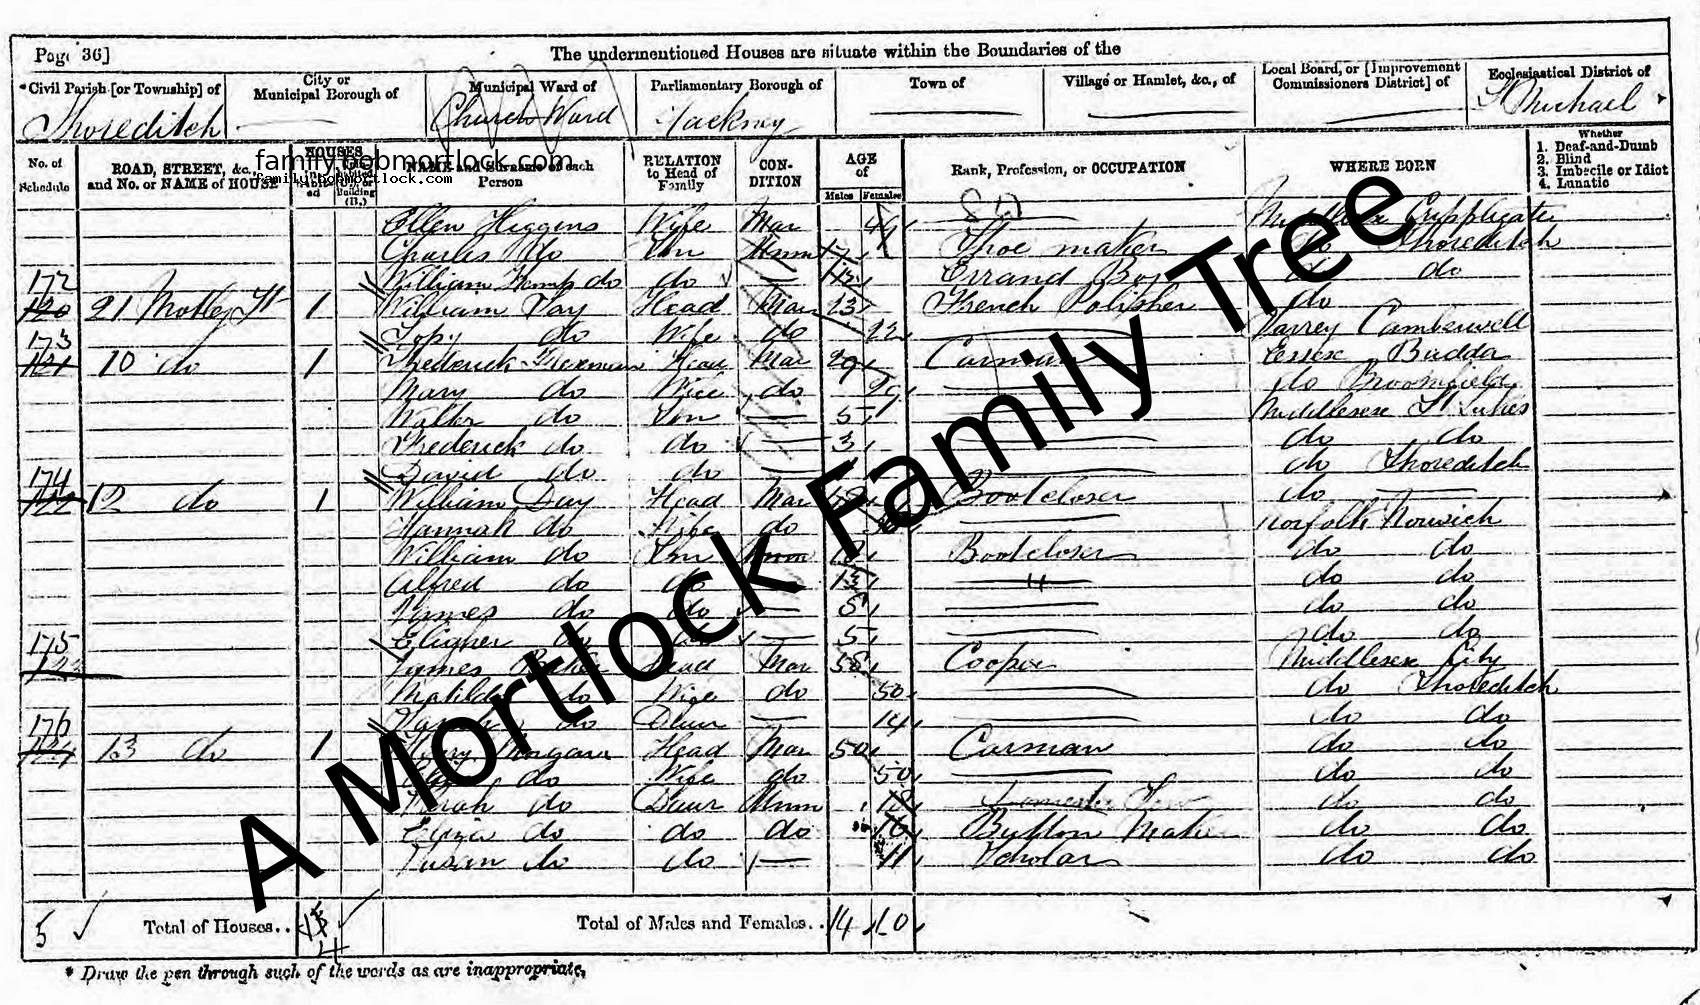 Page 36]
The undermentioned Houses are situate within the Boundaries of the
*Civil Parish [or Township] of
City or Municipal Borough of
Municipal Ward of
Parliamentary Borough of
Town of
Village or Hamlet, &c., of
Local Board, or [Improvement Commissioners District] of
Ecclesiastical District of
Shoreditch
Church Ward
Hackney
St Michael
No. of Schedule
ROAD, STREET, &c., and No. or NAME of HOUSE
HOUSES
NAME and Surname of each Person
RELATION to Head of Family
CONDITION
AGE of
Males
Females
Rank, Profession, or OCCUPATION
WHERE BORN
Whether
1. Deaf-and-Dumb
2. Blind
3. Imbecile or Idiot
4. Lunatic
family.bobmortlock.com
family.bobmortlock.com
Ellen Higgins Wife Mar 49 Middlesex Cripplegate
Charles do Son Unm 17 Shoe maker do Shoreditch
William do do 12 Errand Boy do do
172 21 Motley St 1 William Head Mar 23 French Polisher do
do Wife do 22 Surrey Camberwell
173 10 do 1 Frederick Head Mar 29 Carman Essex
Mary do Wife do 29 do Broomfield
Walter do Son 5 Middlesex St Lukes
Frederick do do 3 do do
David do do do Shoreditch
174 12 do 1 William Day Head Mar Bootcloser do
Hannah do Wife do Norfolk Norwich
William do Son Unm Bootcloser do do
Alfred do do 13 do do
James do do 8 do do
do do 5 do do
175 James Head Mar 58 Cooper Middlesex City
Matilda do Wife do 50 do Shoreditch
do Daur 14 do do
176 13 do 1 Head Mar 50 Carman do do
do Wife do 50 do do
Sarah do Daur Unm 18 do do
Eliza do do do 16 Button Maker do do
Susan do do 11 Scholar do do
5 Total of Houses.. 4 Total of Males and Females.. 14 10
* Draw the pen through such of the words as are inappropriate.
A Mortlock Family Tree